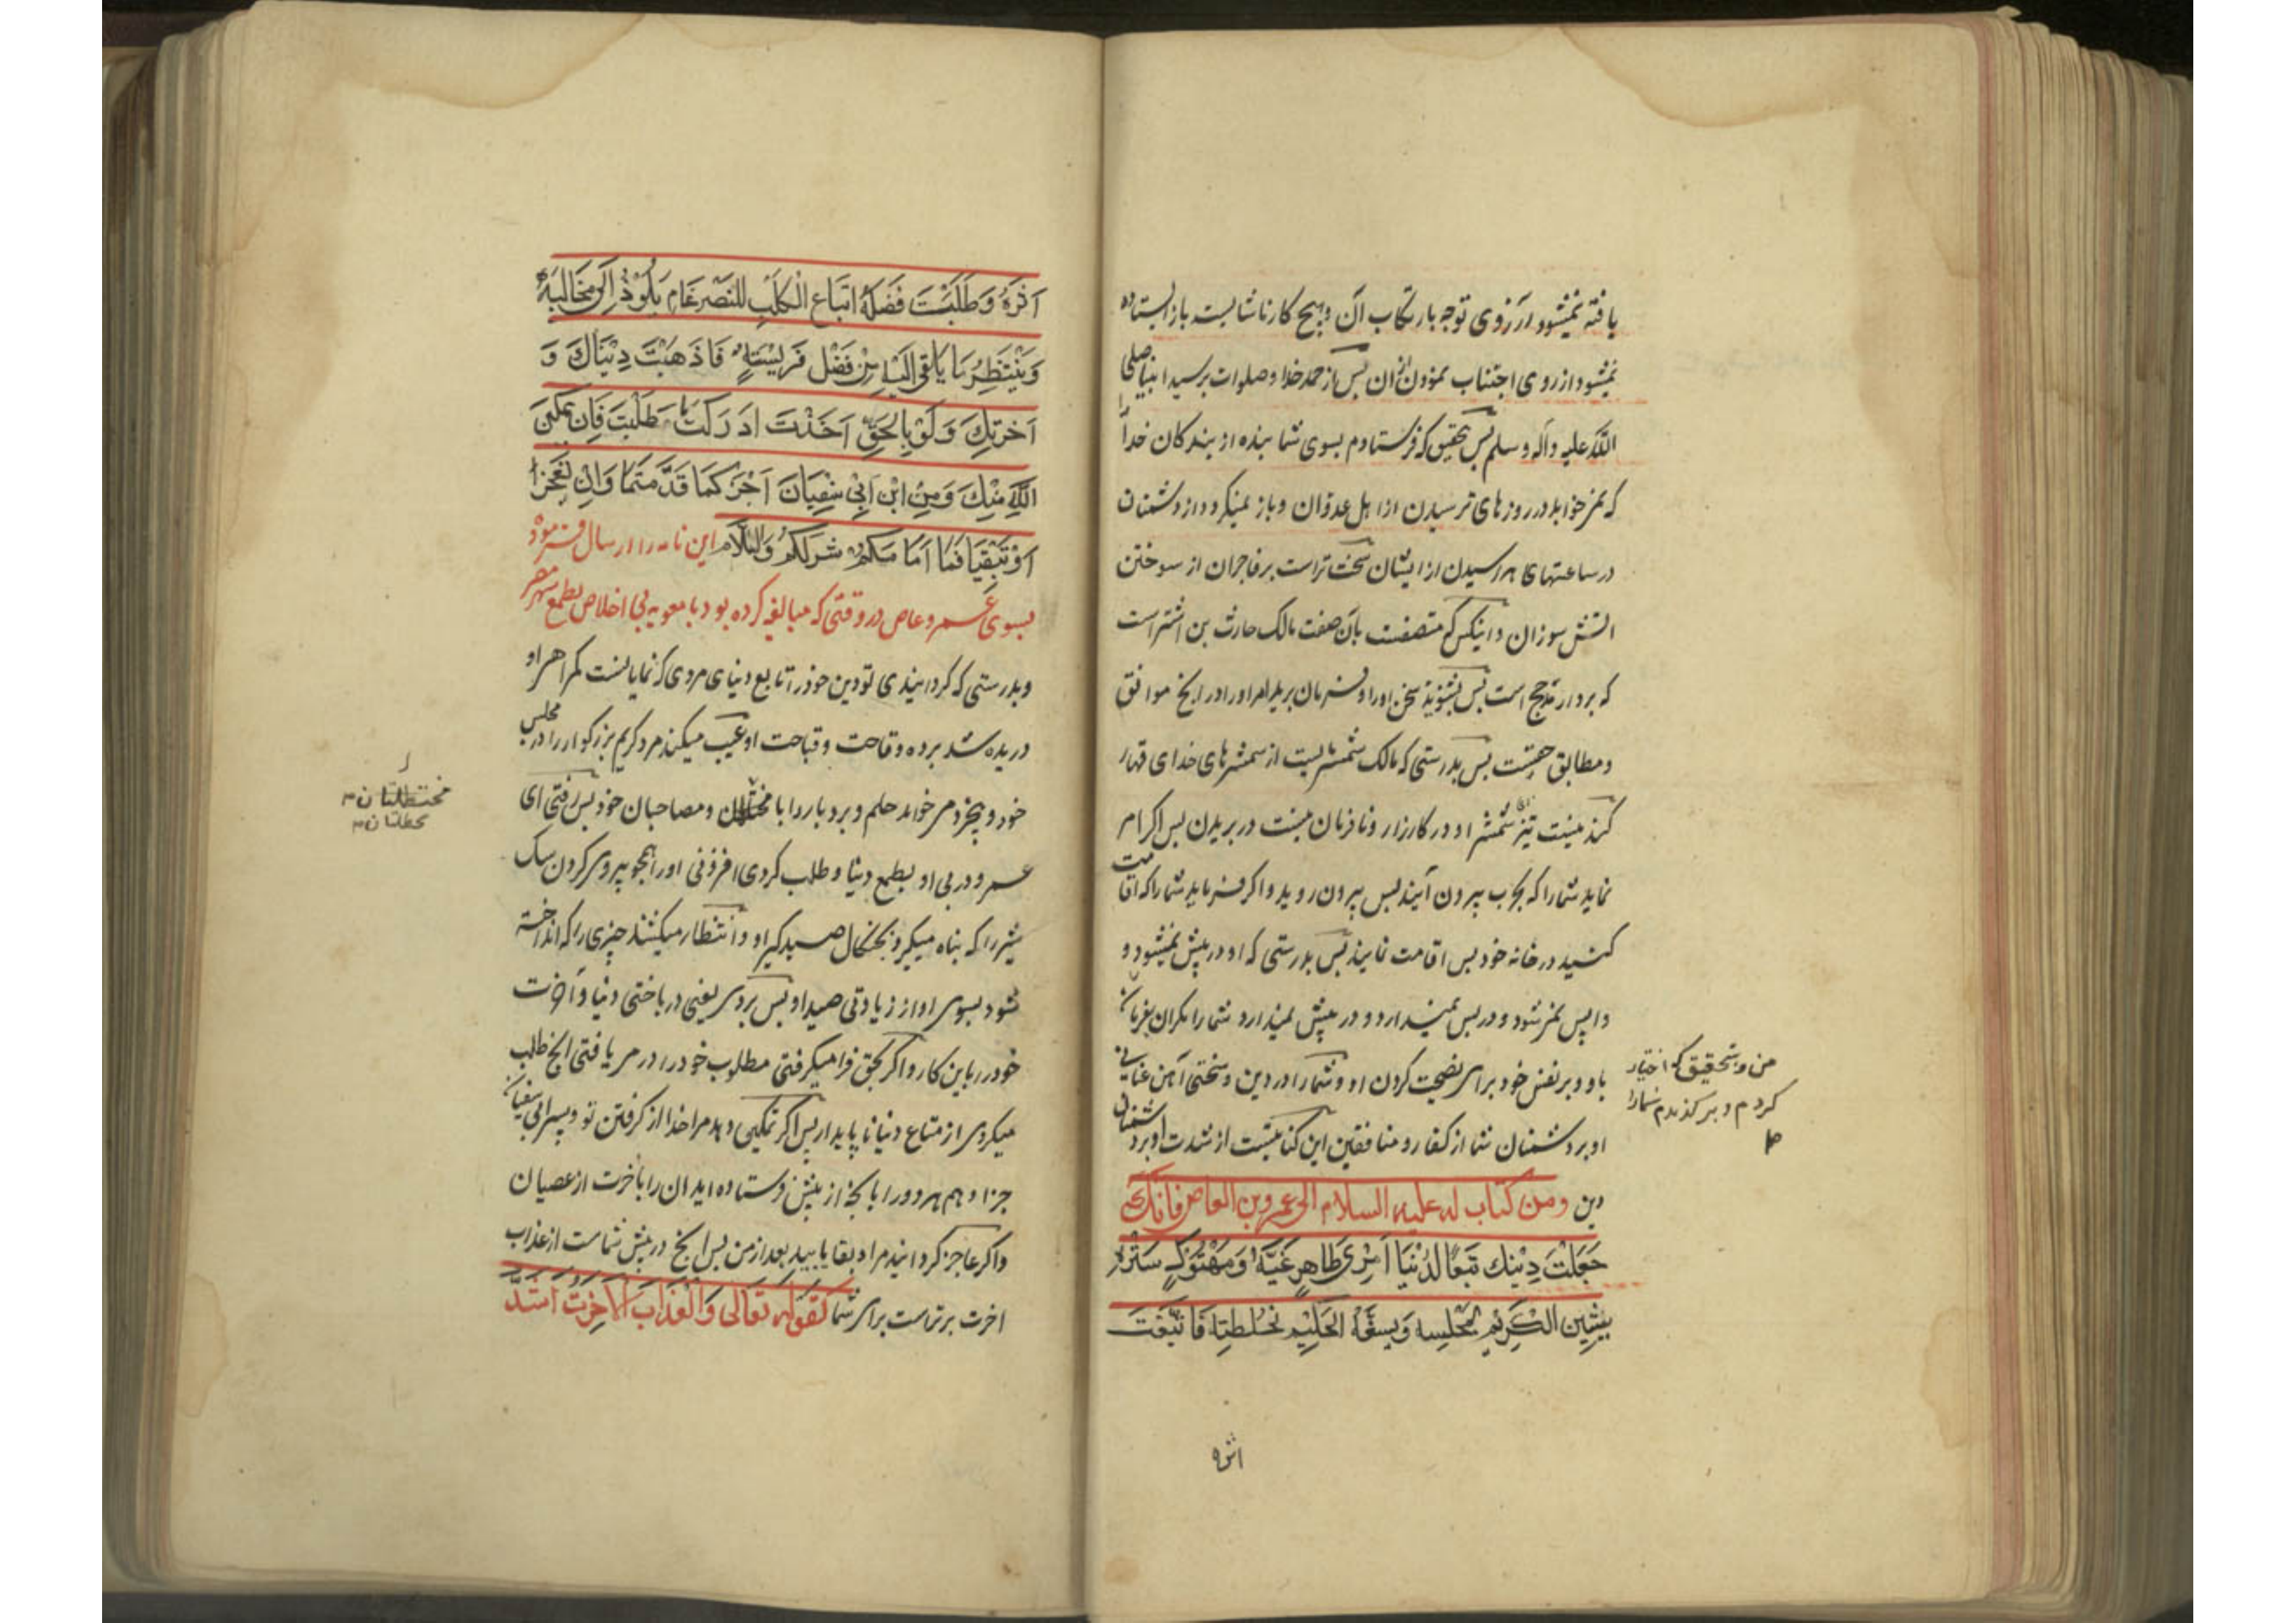 یافته نمیشود از روی توجه بارتکاب آن و هیچ کار ناشایست باز ایستاده
نمیشود از روی اجتناب نمودن از ان پس از حمد خدا و صلوات بر سید انبیا صلی
الله علیه وآله وسلم پس بتحقیق که فرستادم بسوی شما بنده از بندکان خدا را
که نمیخوابد در روزهای ترسیدن از اهل عدوان و باز نمیکردد از دشمنان
در ساعتهای هراسیدن از ایشان سخت تر است بر فاجران از سوختن
اتش سوزان و اینکس که متصفست بآن صفت مالک حارث بن اشتر است
که برادر مذحج است پس بشنوید سخن او را و فرمان برید امر او را در انچ موافق
و مطابق حقست پس بدرستی که مالک شمشیریست از شمشیرهای خدای قهار
کند نیست تیزی شمشیر او در کارزار و نافرمان نیست در بریدن پس اکر امر
نماید شما را که بحرب بیرون آیند پس بیرون روید و اکر فرماید شما را که اقامت
کنید در خانه خود پس اقامت نمایند پس بدرستی که او در پیش نمیشود و
واپس نمیشود و در پس نمیدارد و در پیش نمیدارد شما را مکران بفرمان
من و بتحقیق که اختیار
کردم و برکذیدم شما را
باو و بر نفس خود برای نصیحت کردن او و شما را در دین و سختی آهن عنانی
او بر دشمنان شما از کفار و منافقین این کنایتست از شدت او بر دشمنان
دین ومن کتاب له علیه السلام الی عمرو بن العاص فانک
جَعَلْتَ دِیْنَكَ تَبَعًا لِدُنْیَا اَمْرِئٍ ظَاهِرٍ غَیَّهُ وَمَهْتُوْكٍ سَتْرُهُ
یَشِیْنُ الْکَرِیْمَ بِمَجْلِسِه وَیُسَفِّهُ الْحَلِیْمَ بِخُلْطَتِه فَاتَّبَعْتَ
اثره
اَثَرَهُ وَطَلَبْتَ فَضْلَهُ اتباع الْکَلْبِ لِلضِّرْغَامِ یَلُوْذُ اِلَی مَخَالِبَهِ
وَیَنْتَظِرُ مَا یُلْقٰی اِلَیْهِ مِنْ فَضْلِ فَرِیْسَتِهٖ فَاَذْهَبْتَ دِیْنَاكَ وَ
اَخِرَتِكَ وَلَوْ بِالْحَقِّ اَخَذْتَ اَدْرَکْتَ مَا طَلَبْتَ فَاِنْ یمکن
اللَّهُ مِنْكَ وَمِنْ ابْنِ اَبِیْ سُفْیَانَ اَجْزِکُمَا قَدَّمْتُمَا وَاِنْ تُعْجِزَا
اَوْتَبْقَیَا فَمَا اَمَامَکُمْ شر لَکُمْ وَالسَّلَام این نامه را ارسال فرمود
بسوی عمرو عاص در وقتی که مبالغه کرده بود با معویه بی اخلاص بطمع شهر مصر
وبدرستی که کردانیدی تو دین خود را تابع دنیای مردی که نمایانست کمراهی او
دریده شد پرده وقاحت و قباحت او عیب میکند مرد کریم بزرکوار را در مجلس
خود و بیخرد میخواند حلیم و بردبار را با مختلطان و مصاحبان خود پس رفتی ای
مختطلتان
خطلتان
عمرو در پی او بطمع دنیا و طلب کردی افزونی او را همچو پیروی کردن سک
شیر را که پناه میکیرد بچنکال صیدکیر او و انتظار میکشد چیزی را که انداخته
شود بسوی او از زیادتی صید او پس بردی یعنی در باختی دنیا و آخرت
خود را باین کار و اکر بحق فرا میکرفتی مطلوب خود را در می یافتی انچ طلب
میکردی از متاع دنیا ناپایدار پس اکر تمکین دهد مرا خدا از کرفتن تو و پسر ابی سفیان
جزا دهم هر دو را بآنچه از پیش فرستاده اید ان را بآخرت از عصیان
و اکر عاجز کردانید مرا و بقا یابید بعد از من پس انچ در پیش شماست از عذاب
اخرت بدتر است برای شما کقوله تعالی وَالْعَذَابَ الْاَخِرَتِ اَشَدُّ